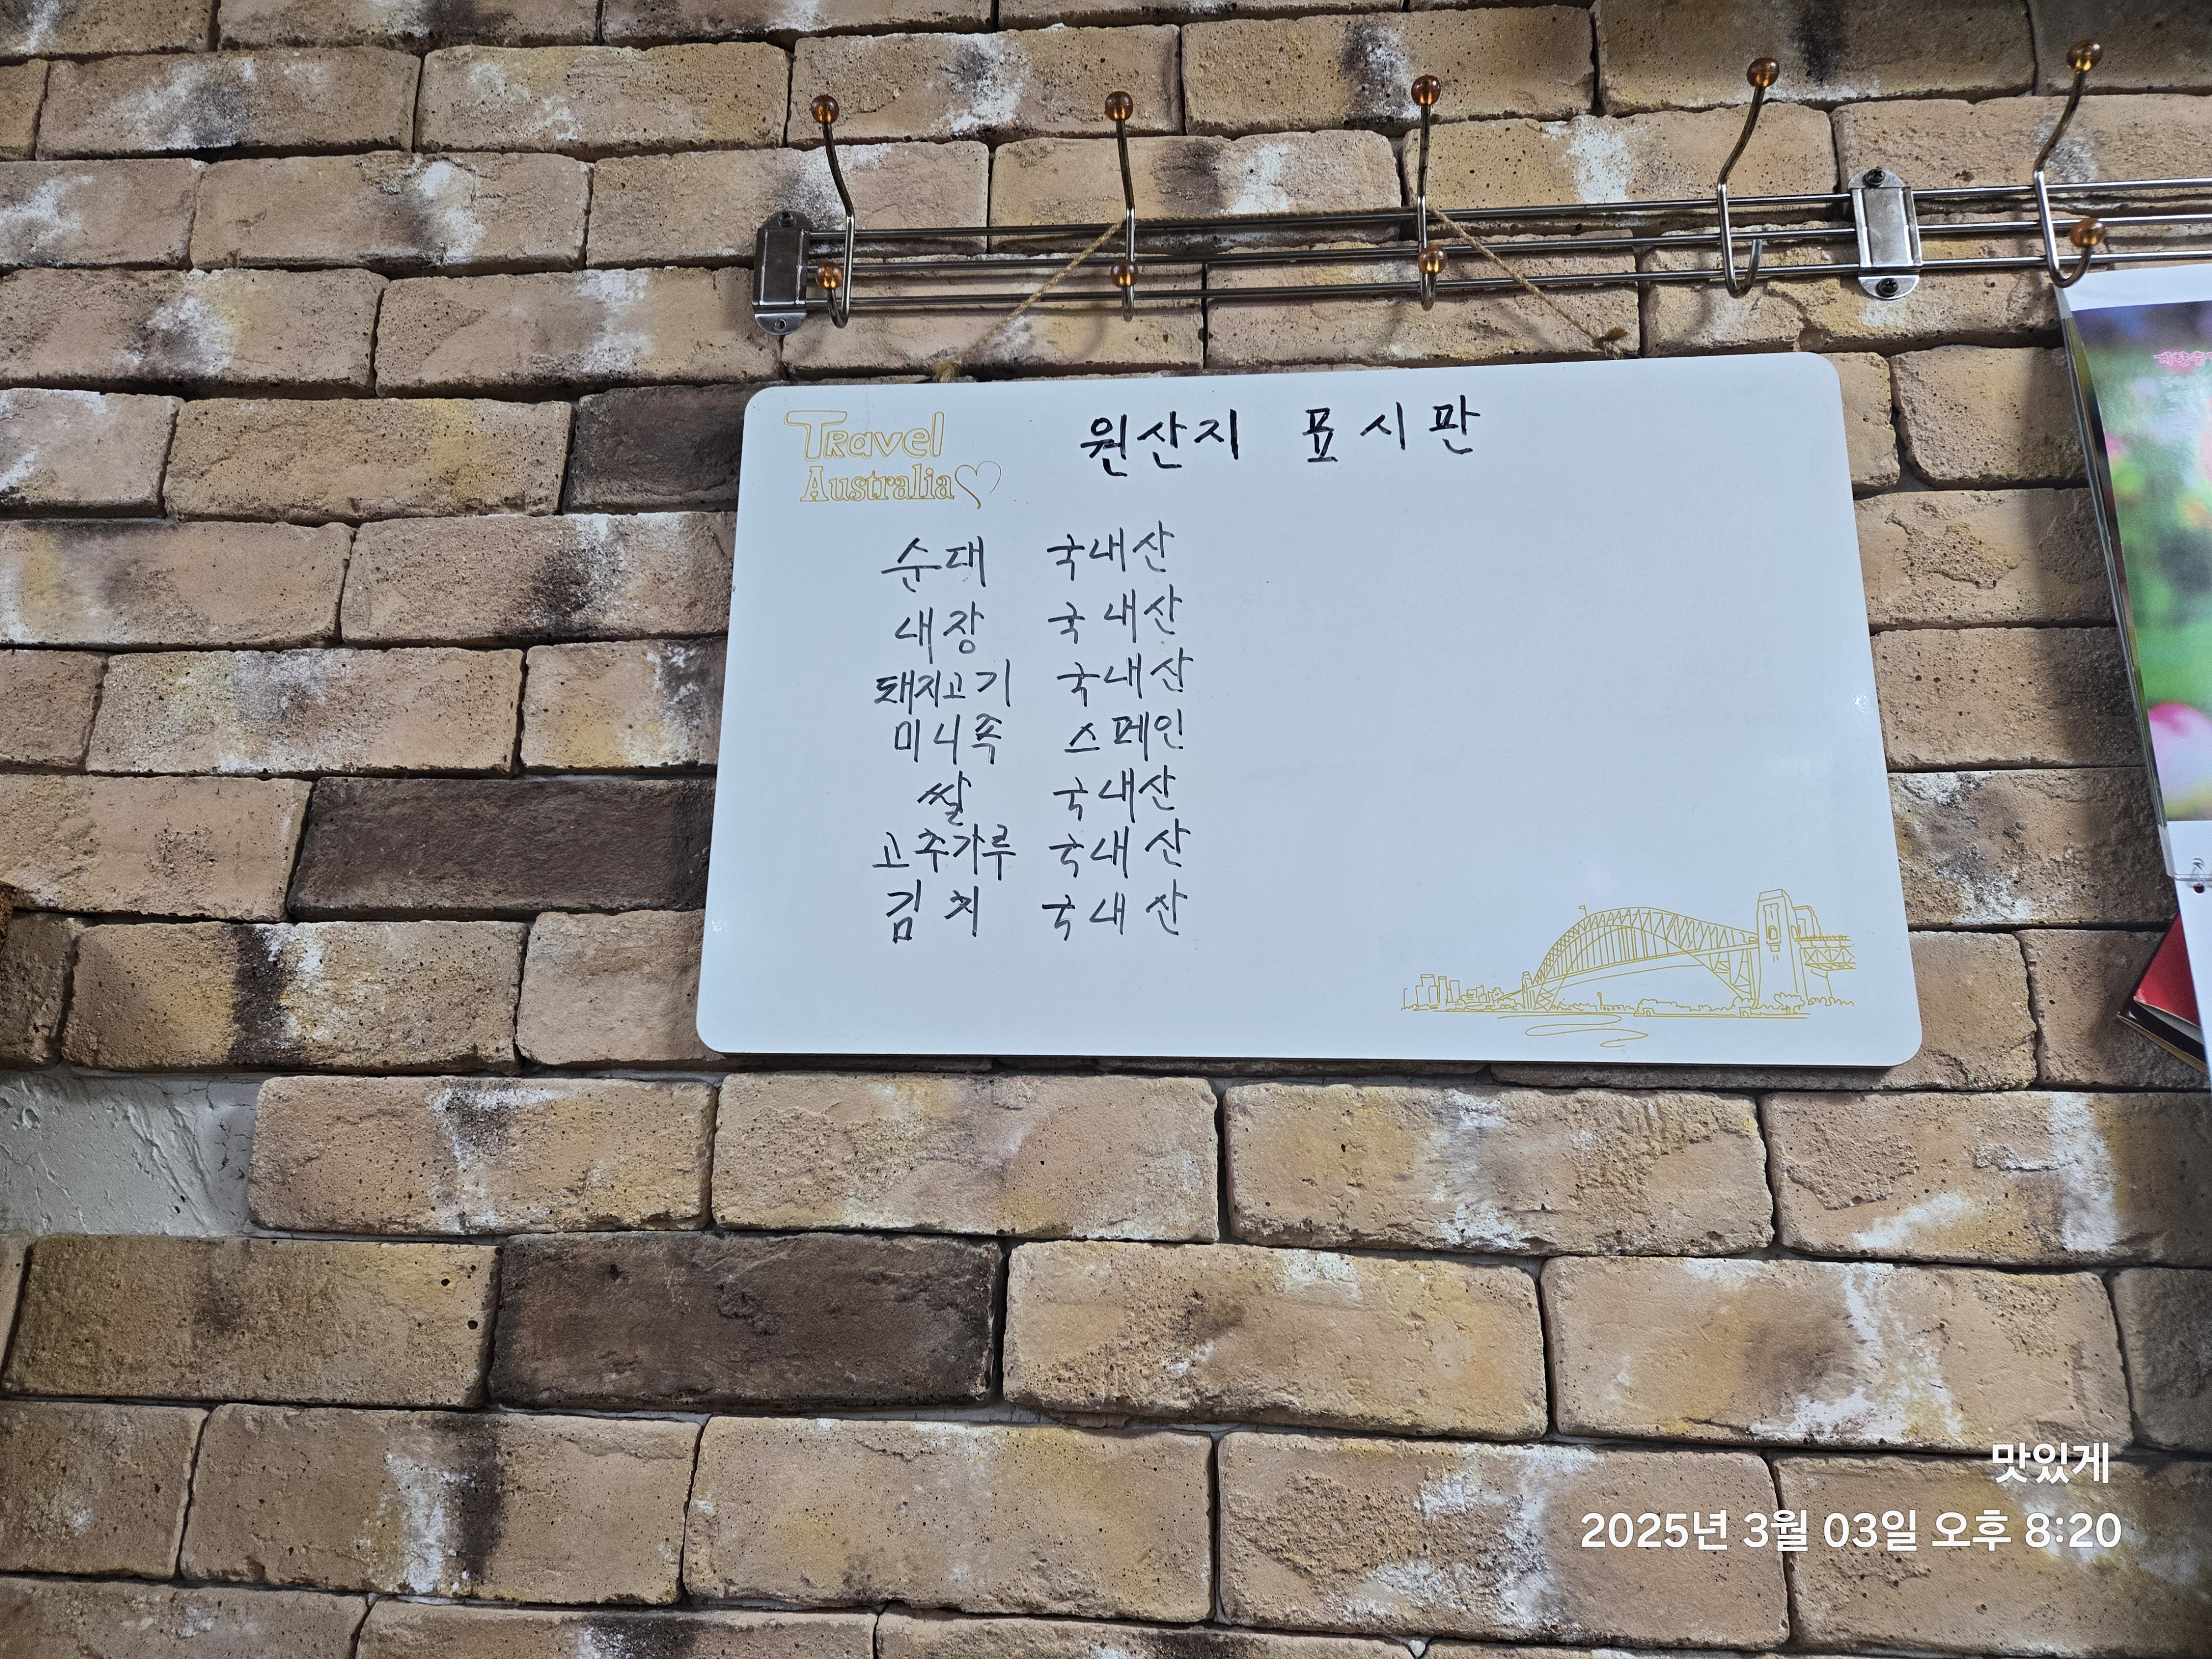 Travel
Australia
원산지 표시판
순대 국내산
내장 국내산
돼지고기 국내산
미니족 스페인
쌀 국내산
고추가루 국내산
김치 국내산
맛있게
2025년 3월 03일 오후 8:20